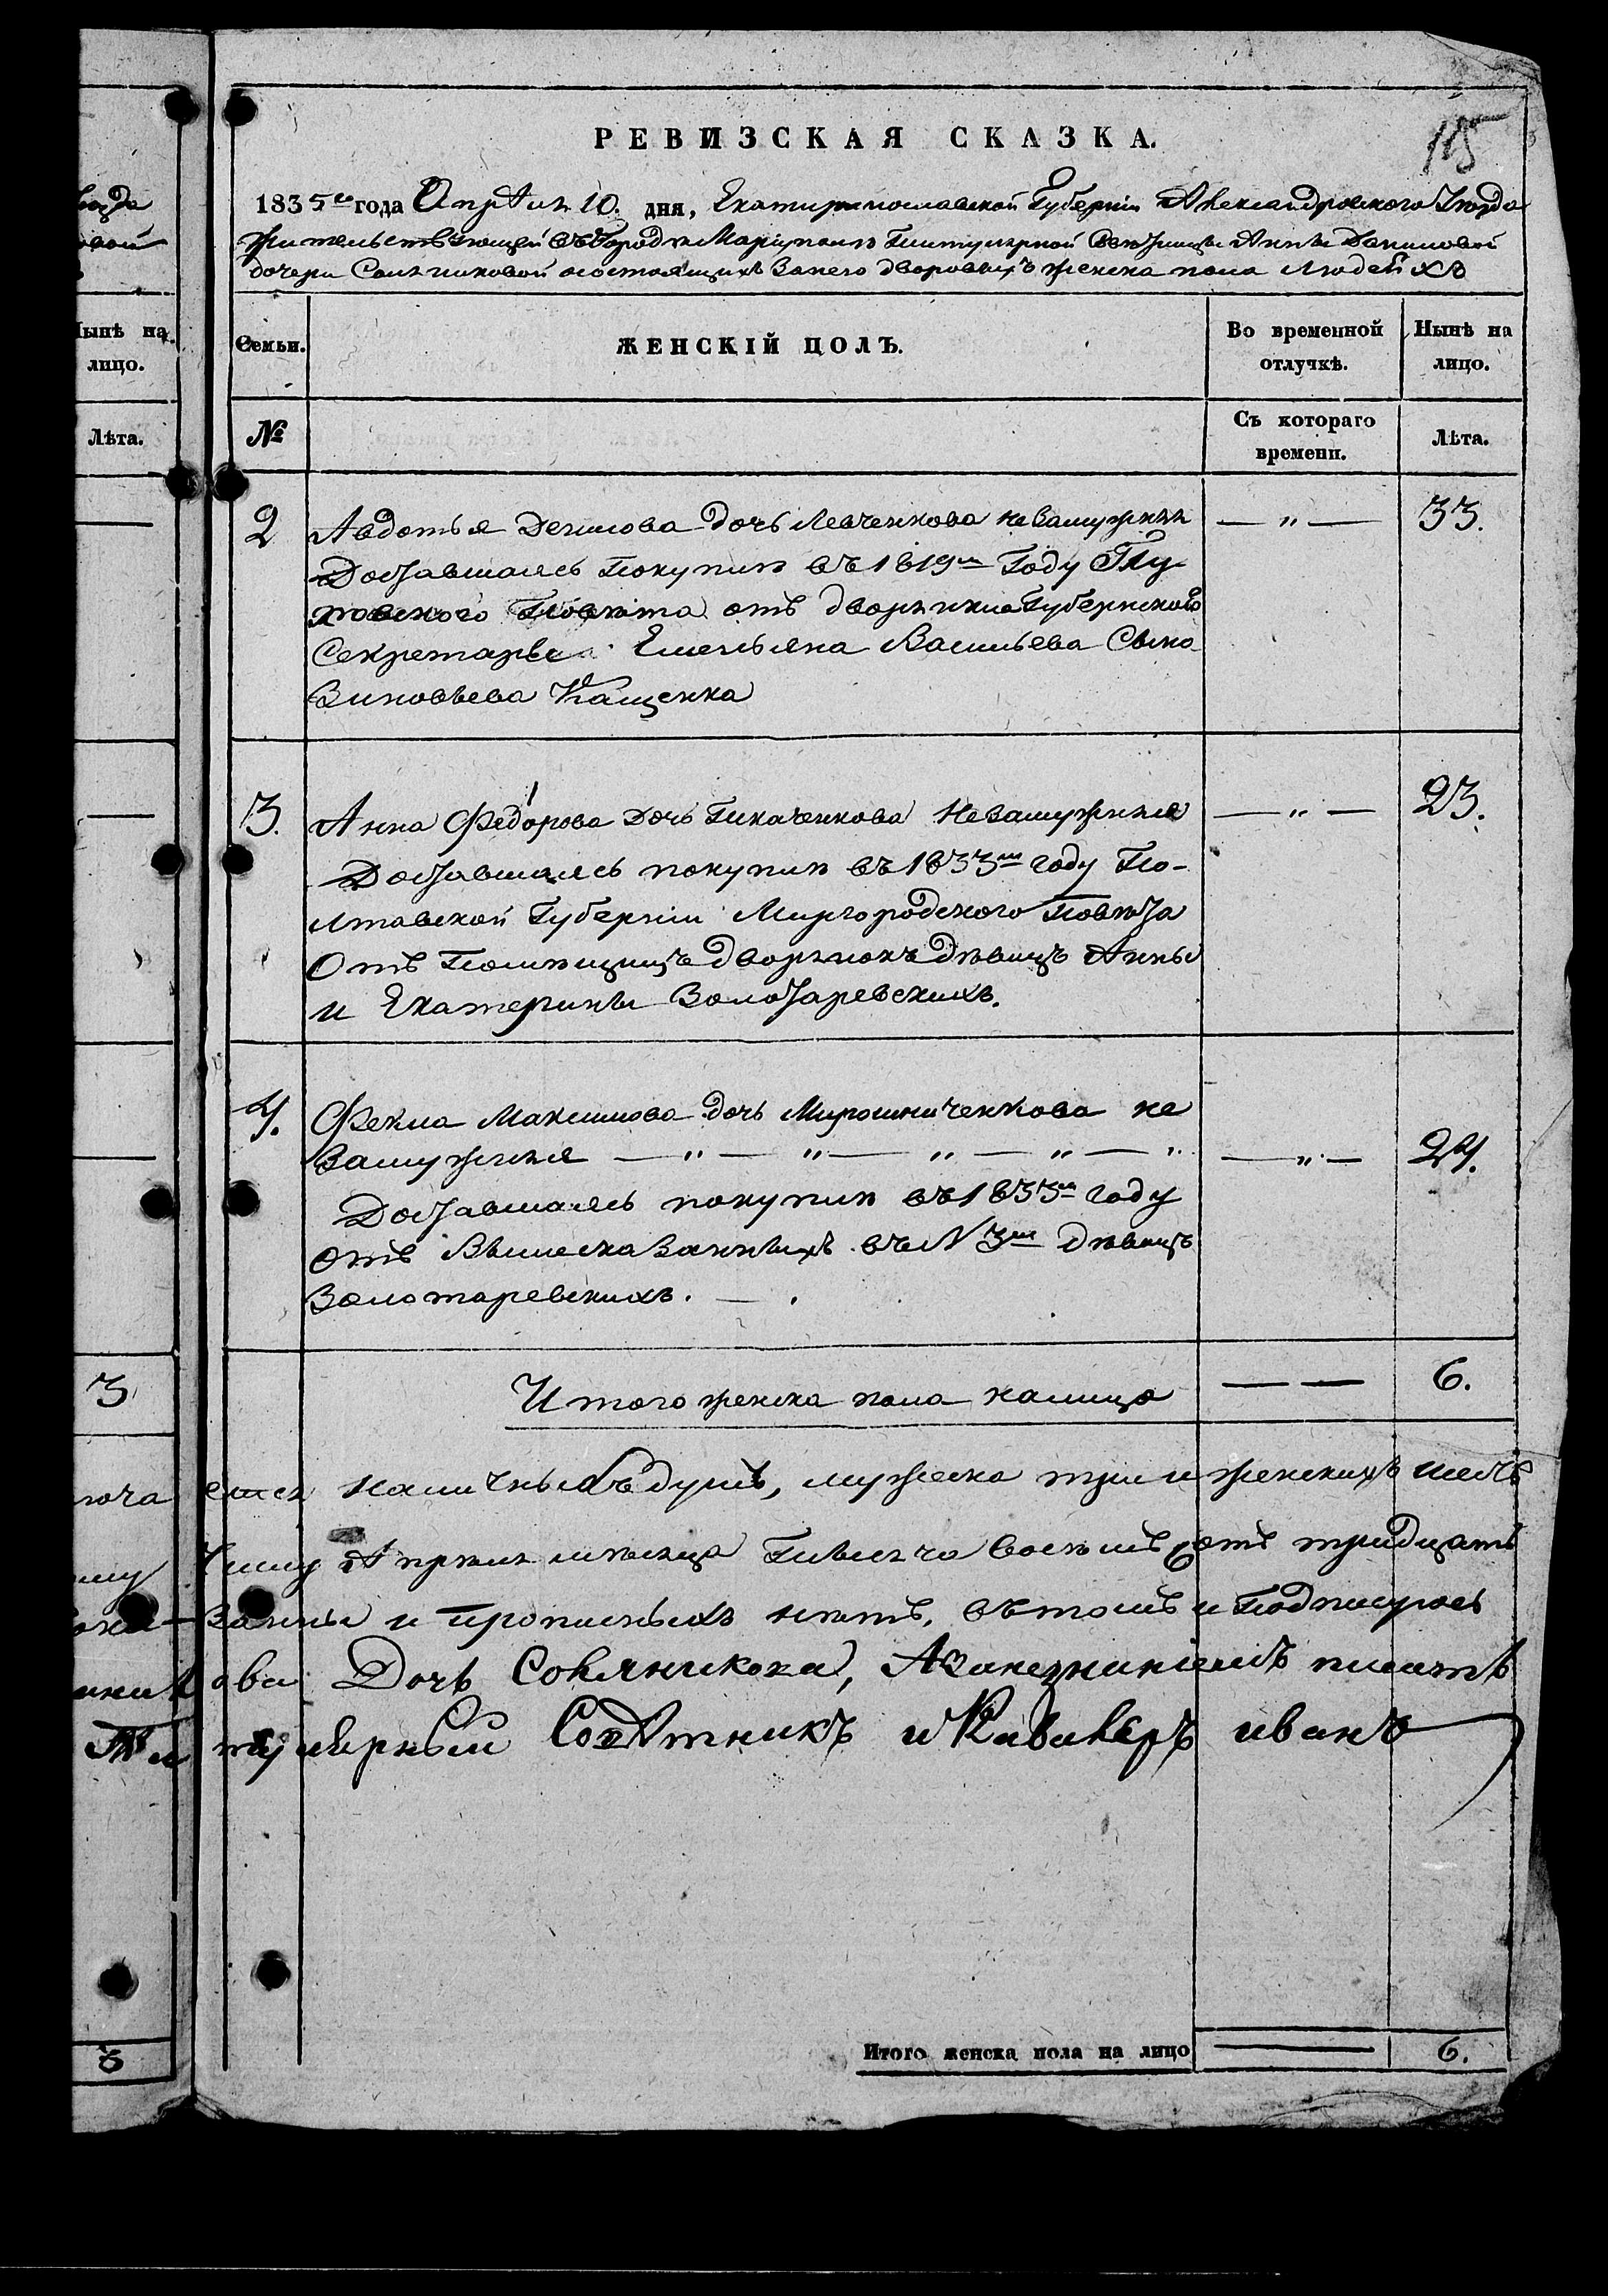 РЕВИЗСКАЯ СКАЗКА.
115
1835го года Апреля 10. дня, Екатеринославской Губерніи Александровского Уезда
жительствующей въ Городѣ Маріуполѣ Титулярной Советницы Анны Даниловой
дочери Сольниковой состоящихъ за нею дворовыхъ женска пола людей
Нынѣ на лицо.
Семьи.
ЖЕНСКІЙ ПОЛЪ.
Во временной отлучкѣ.
Нынѣ на лицо.
Лѣта.
№
Съ котораго времени.
Лѣта.
2 Авдотья Денисова дочь Левченкова незамужняя — „ — 33.
Доставшаясь покупкѣ въ 1819м Году
Повѣта отъ дворянина Губернского
Секретаря Емельяна Васильева Сына
Зиновьева Кащенка
3. Анна Федорова Дочь Ткаченкова Незамужняя — „ — 23.
Доставшаясь покупкѣ въ 1833м году По-
лтавской Губерніи Миргородского Повѣта
Отъ Помѣщицъ дворянокъ дѣвицъ Анны
и Екатерины Золотаревскихъ.
4. Фекла Максимова дочь Мирошниченкова не
замужняя — „ — „ — „ — „ — „ — „ — 24.
Доставшаясь покупкѣ въ 1833м году
отъ Вышесказанныхъ въ N 3м дѣвицъ
Золотаревскихъ. — .
3
Итого женска пола налицо — — 6.
наличныхъ душъ, мужска три и женскихъ шесть
Апреля мѣсяца Тысяча восемь сотъ тридцать
и прописныхъ нѣтъ, въ томъ и подписуюсь
ова Дочь Сольникова, А занезнаніемъ писать
Титулярный Совѣтникъ и Кавалеръ иванъ
3
Итого женска пола на лицо — 6.